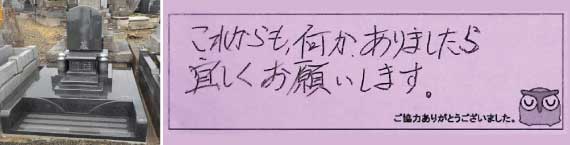 これからも、何か、ありましたら
宜しくお願いします。
ご協力ありがとうございました。